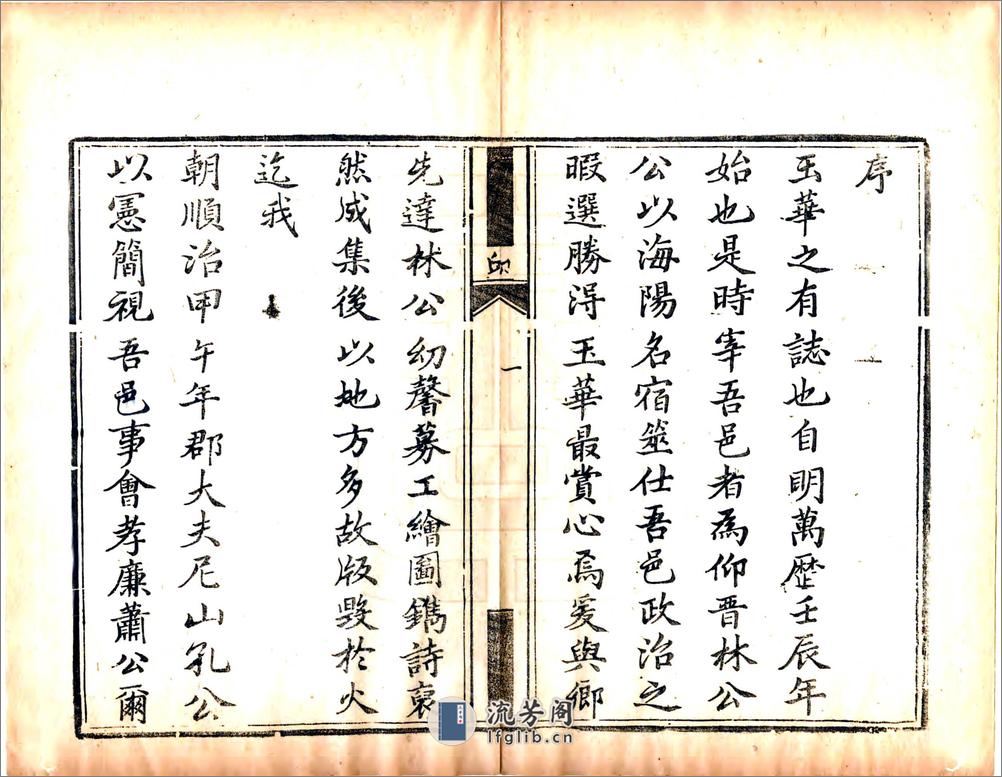 序
玉華之有誌也自明萬歷壬辰年
始也是時宰吾邑者為仰晋林公
公以海陽名宿筮仕吾邑政治之
暇選勝淂玉華最賞心焉爰與鄉
邱
一
先達林公幼馨募工繪圖鐫詩裒
然成集後以地方多故版毀於火
迄我
朝順治甲午年郡大夫尼山孔公
以憲簡視吾邑事會孝廉蕭公爾
流芳阁
lfglib.cn